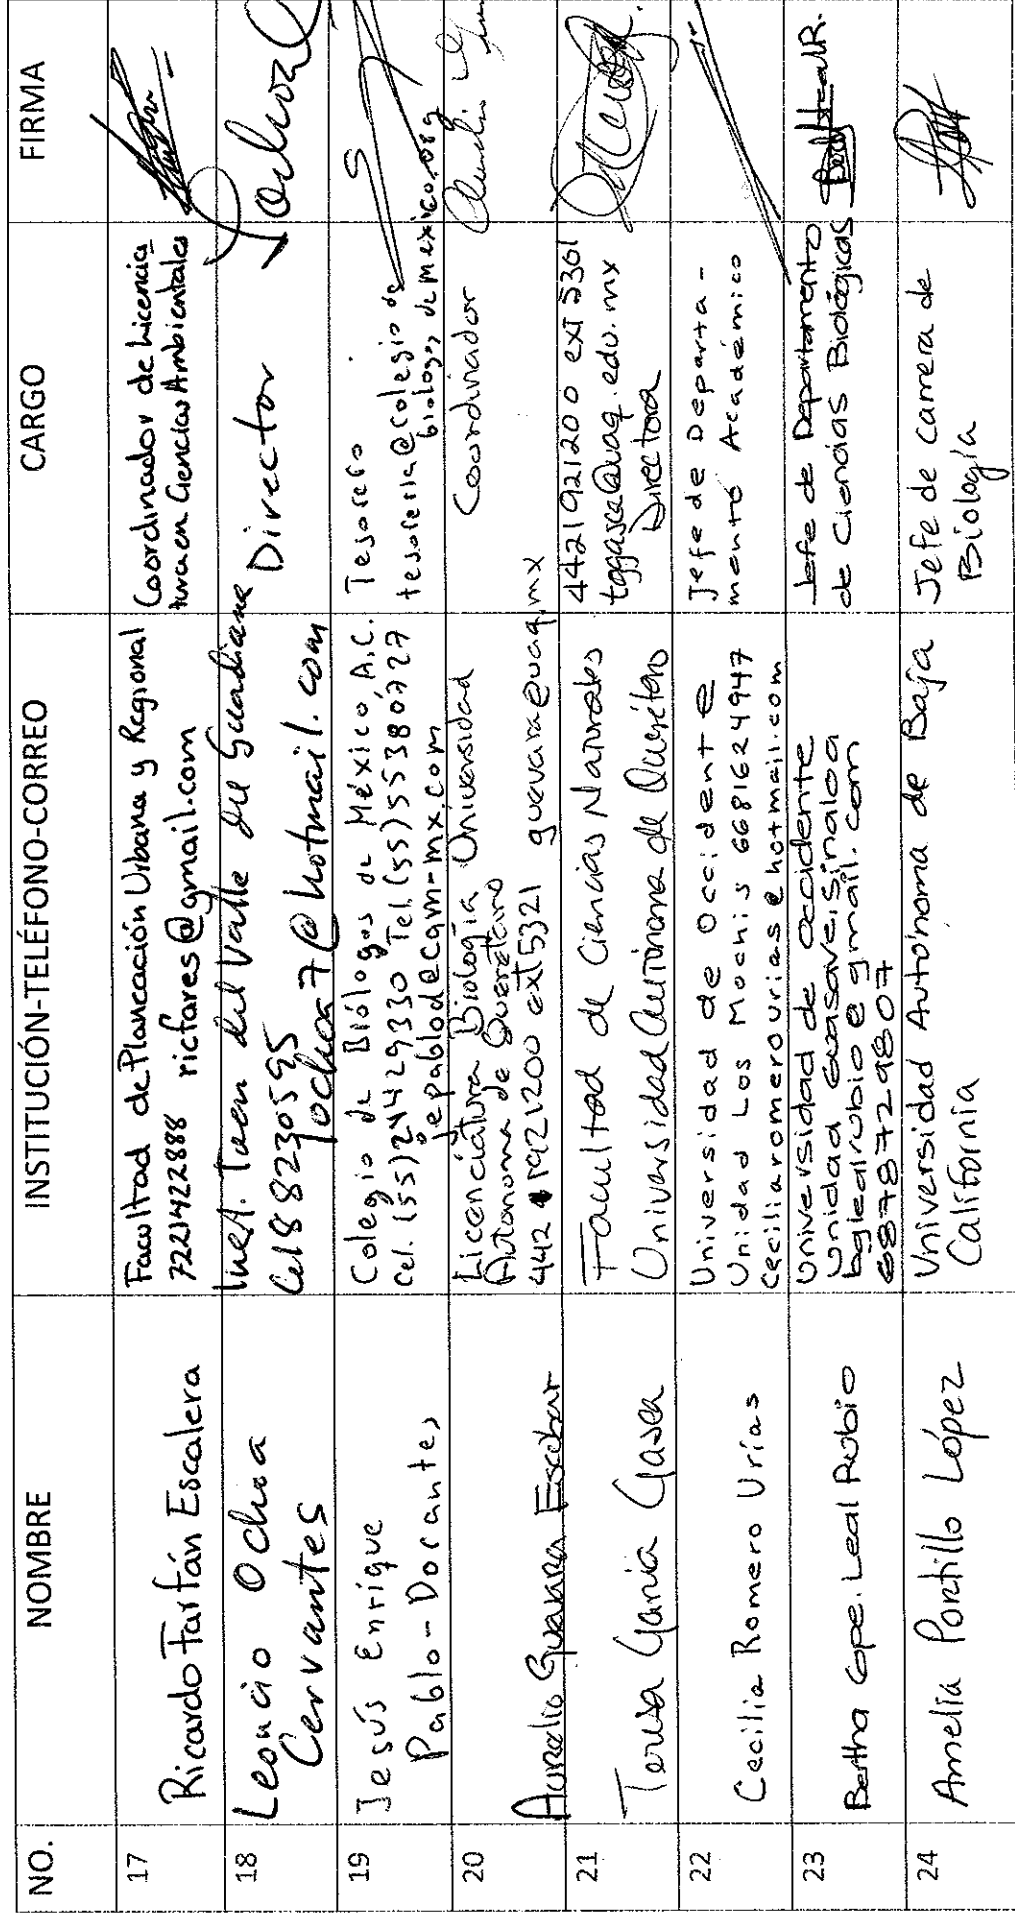 NO. NOMBRE INSTITUCIÓN-TELÉFONO-CORREO CARGO FIRMA
17
Ricardo Farfán Escalera
Facultad de Planeación Urbana y Regional
7221422888 ricfares@gmail.com
Coordinador de Licencia
tura en Ciencias Ambientales
18
Leoncio Ochoa
Cervantes
del Valle del Guadiana
Cel 8 8230595
lochoa7@hotmail.com
Director
19
Jesús Enrique
Pablo-Dorantes
Colegio de Biólogos de México, A.C.
Cel. (55)24429330 Tel. (55)55380727
jepablod@cqm-mx.com
Tesorero
tesoreria@colegio de
biologos de mexico.org
20
Aurelio Guevara Escobar
Licenciatura Biología Universidad
Autonoma de Querétaro
442 1921200 ext 5321 guevara@uaq.mx
Coordinador
21
Teresa García Gasca
Facultad de Ciencias Naturales
Universidad Autónoma de Querétaro
4421921200 ext 5301
tggasca@uaq.edu.mx
Directora
22
Cecilia Romero Urías
Universidad de Occidente
Unidad Los Mochis 6681624947
ceciliaromerourias@hotmail.com
Jefe de Departa-
mento Académico
23
Bertha Gpe. Leal Rubio
Universidad de Occidente
Unidad Guasave, Sinaloa
bglealrubio@gmail.com
6878729807
Jefe de Departamento
de Ciencias Biológicas
24
Amelia Portillo López
Universidad Autónoma de Baja
California
Jefe de carrera de
Biología